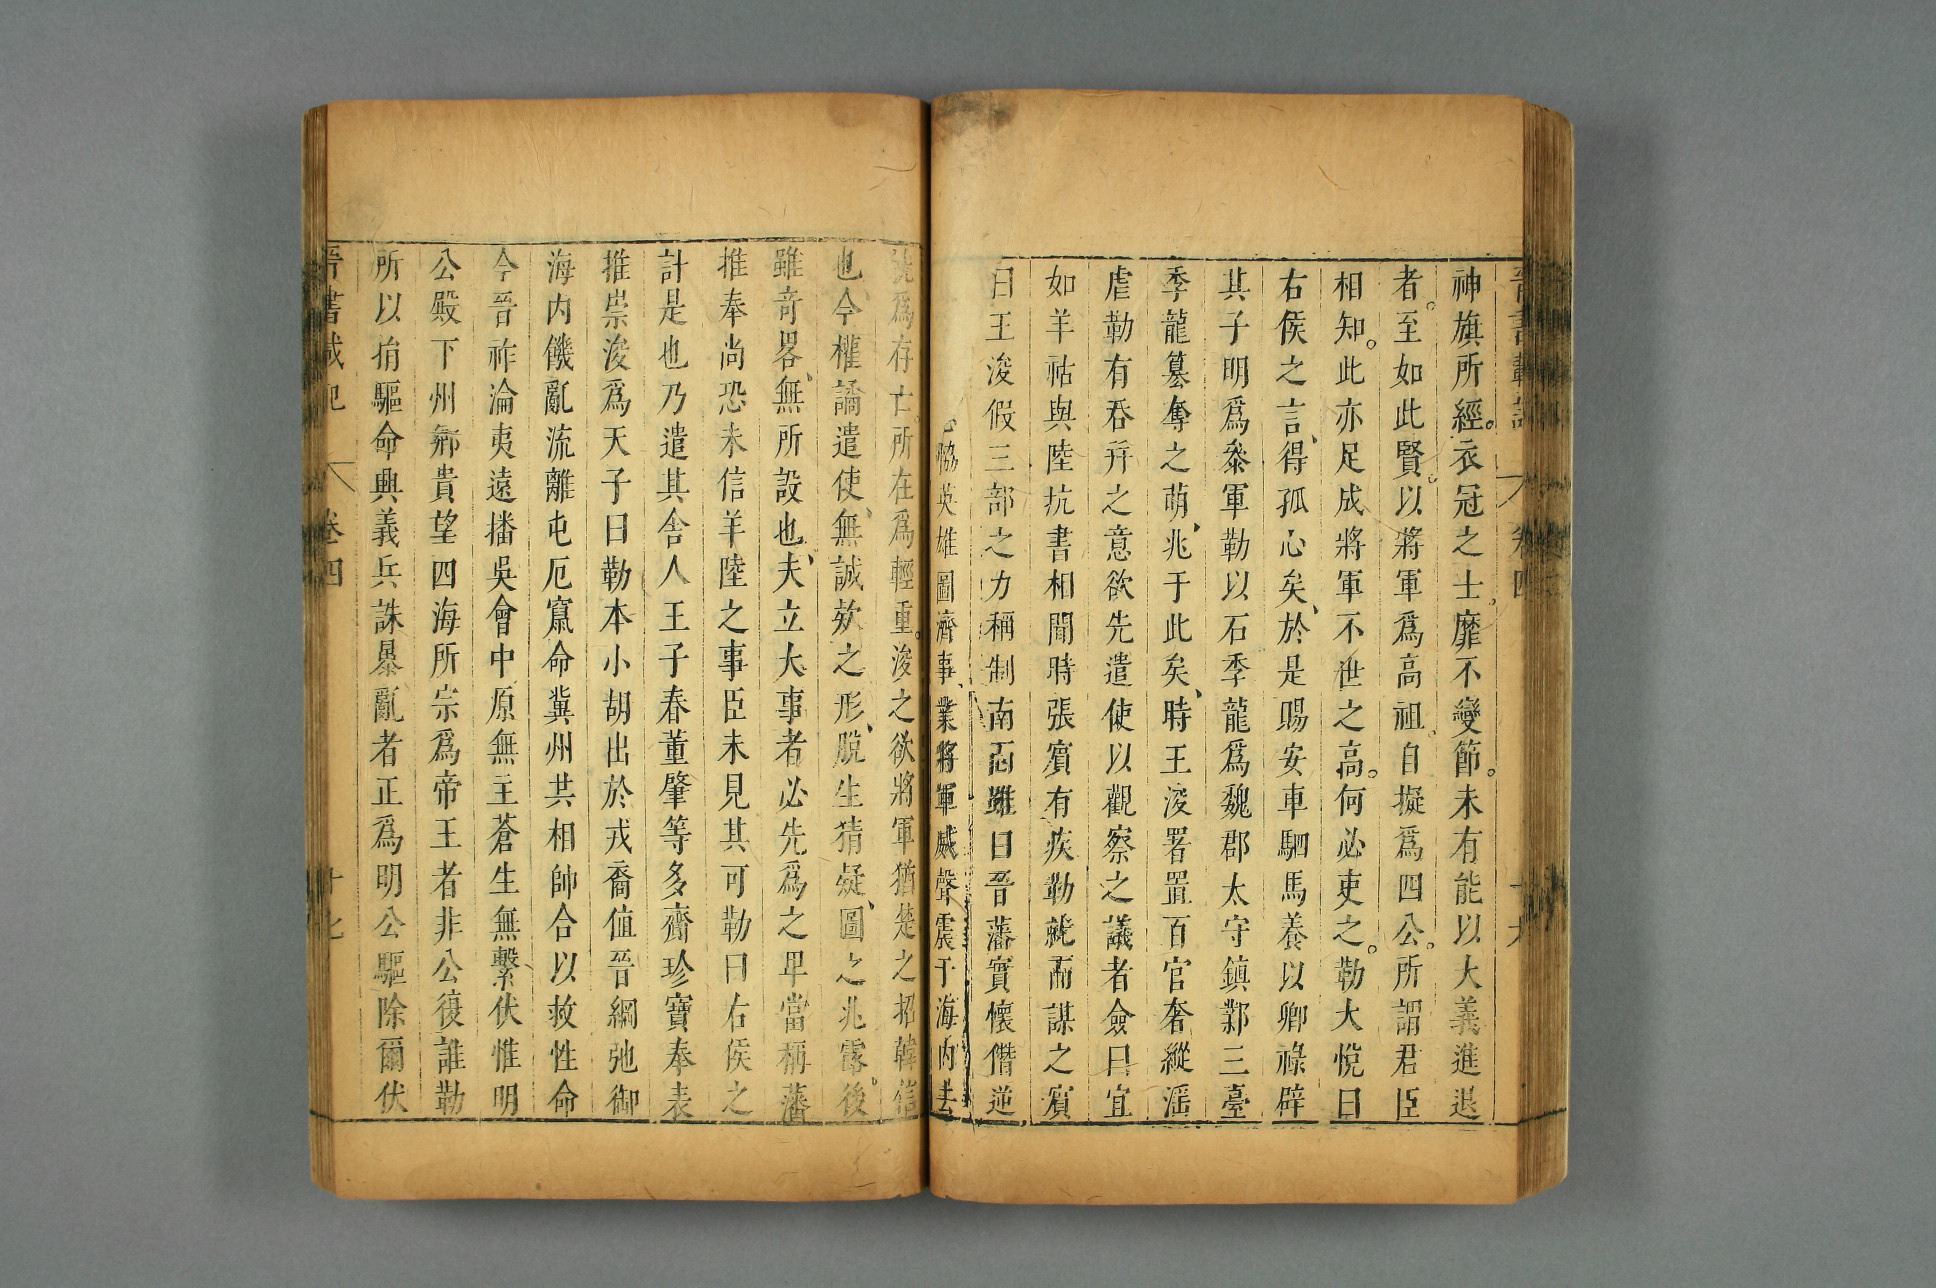 晉書載記 卷四
神旗所經。衣冠之士。靡不變節。未有能以大義進退
者。至如此賢。以將軍爲高祖。自擬爲四公。所謂君臣
相知。此亦足成將軍不世之高。何必吏之。勒大悅曰
右侯之言、得孤心矣、於是賜安車駟馬養以卿祿辟
其子明爲叅軍勒以石季龍爲魏郡太守鎮鄴三臺
季龍簒奪之萌、兆于此矣、時王浚署置百官奢縱滛
虐勒有吞并之意欲先遣使以觀察之議者僉曰宜
如羊祜與陸抗書相聞時張賔有疾勒就而謀之賔
曰王浚假三部之力稱制南靣雖曰晉藩實懷僭逆
恊英雄圖濟事、業將軍威聲震于海内去
就爲存亡。所在爲輕重。浚之欲將軍猶楚之招韓信
也今權譎遣使、無誠欵之形、脫生猜疑、圖之兆露。後
雖奇畧、無所設也、夫立大事者必先爲之卑當稱藩
推奉尚恐未信羊陸之事臣未見其可勒曰右侯之
計是也乃遣其舍人王子春董肇等多齎珍寶奉表
推崇浚爲天子曰勒本小胡出於戎裔值晉綱弛御
海内饑亂流離屯厄竄命冀州共相帥合以救性命
今晉祚淪夷遠播吳會中原無主蒼生無繫伏惟明
公殿下州鄉貴望四海所宗爲帝王者非公復誰勒
所以捐驅命興義兵誅暴亂者正爲明公驅除爾伏
晉書載記 卷四 十七